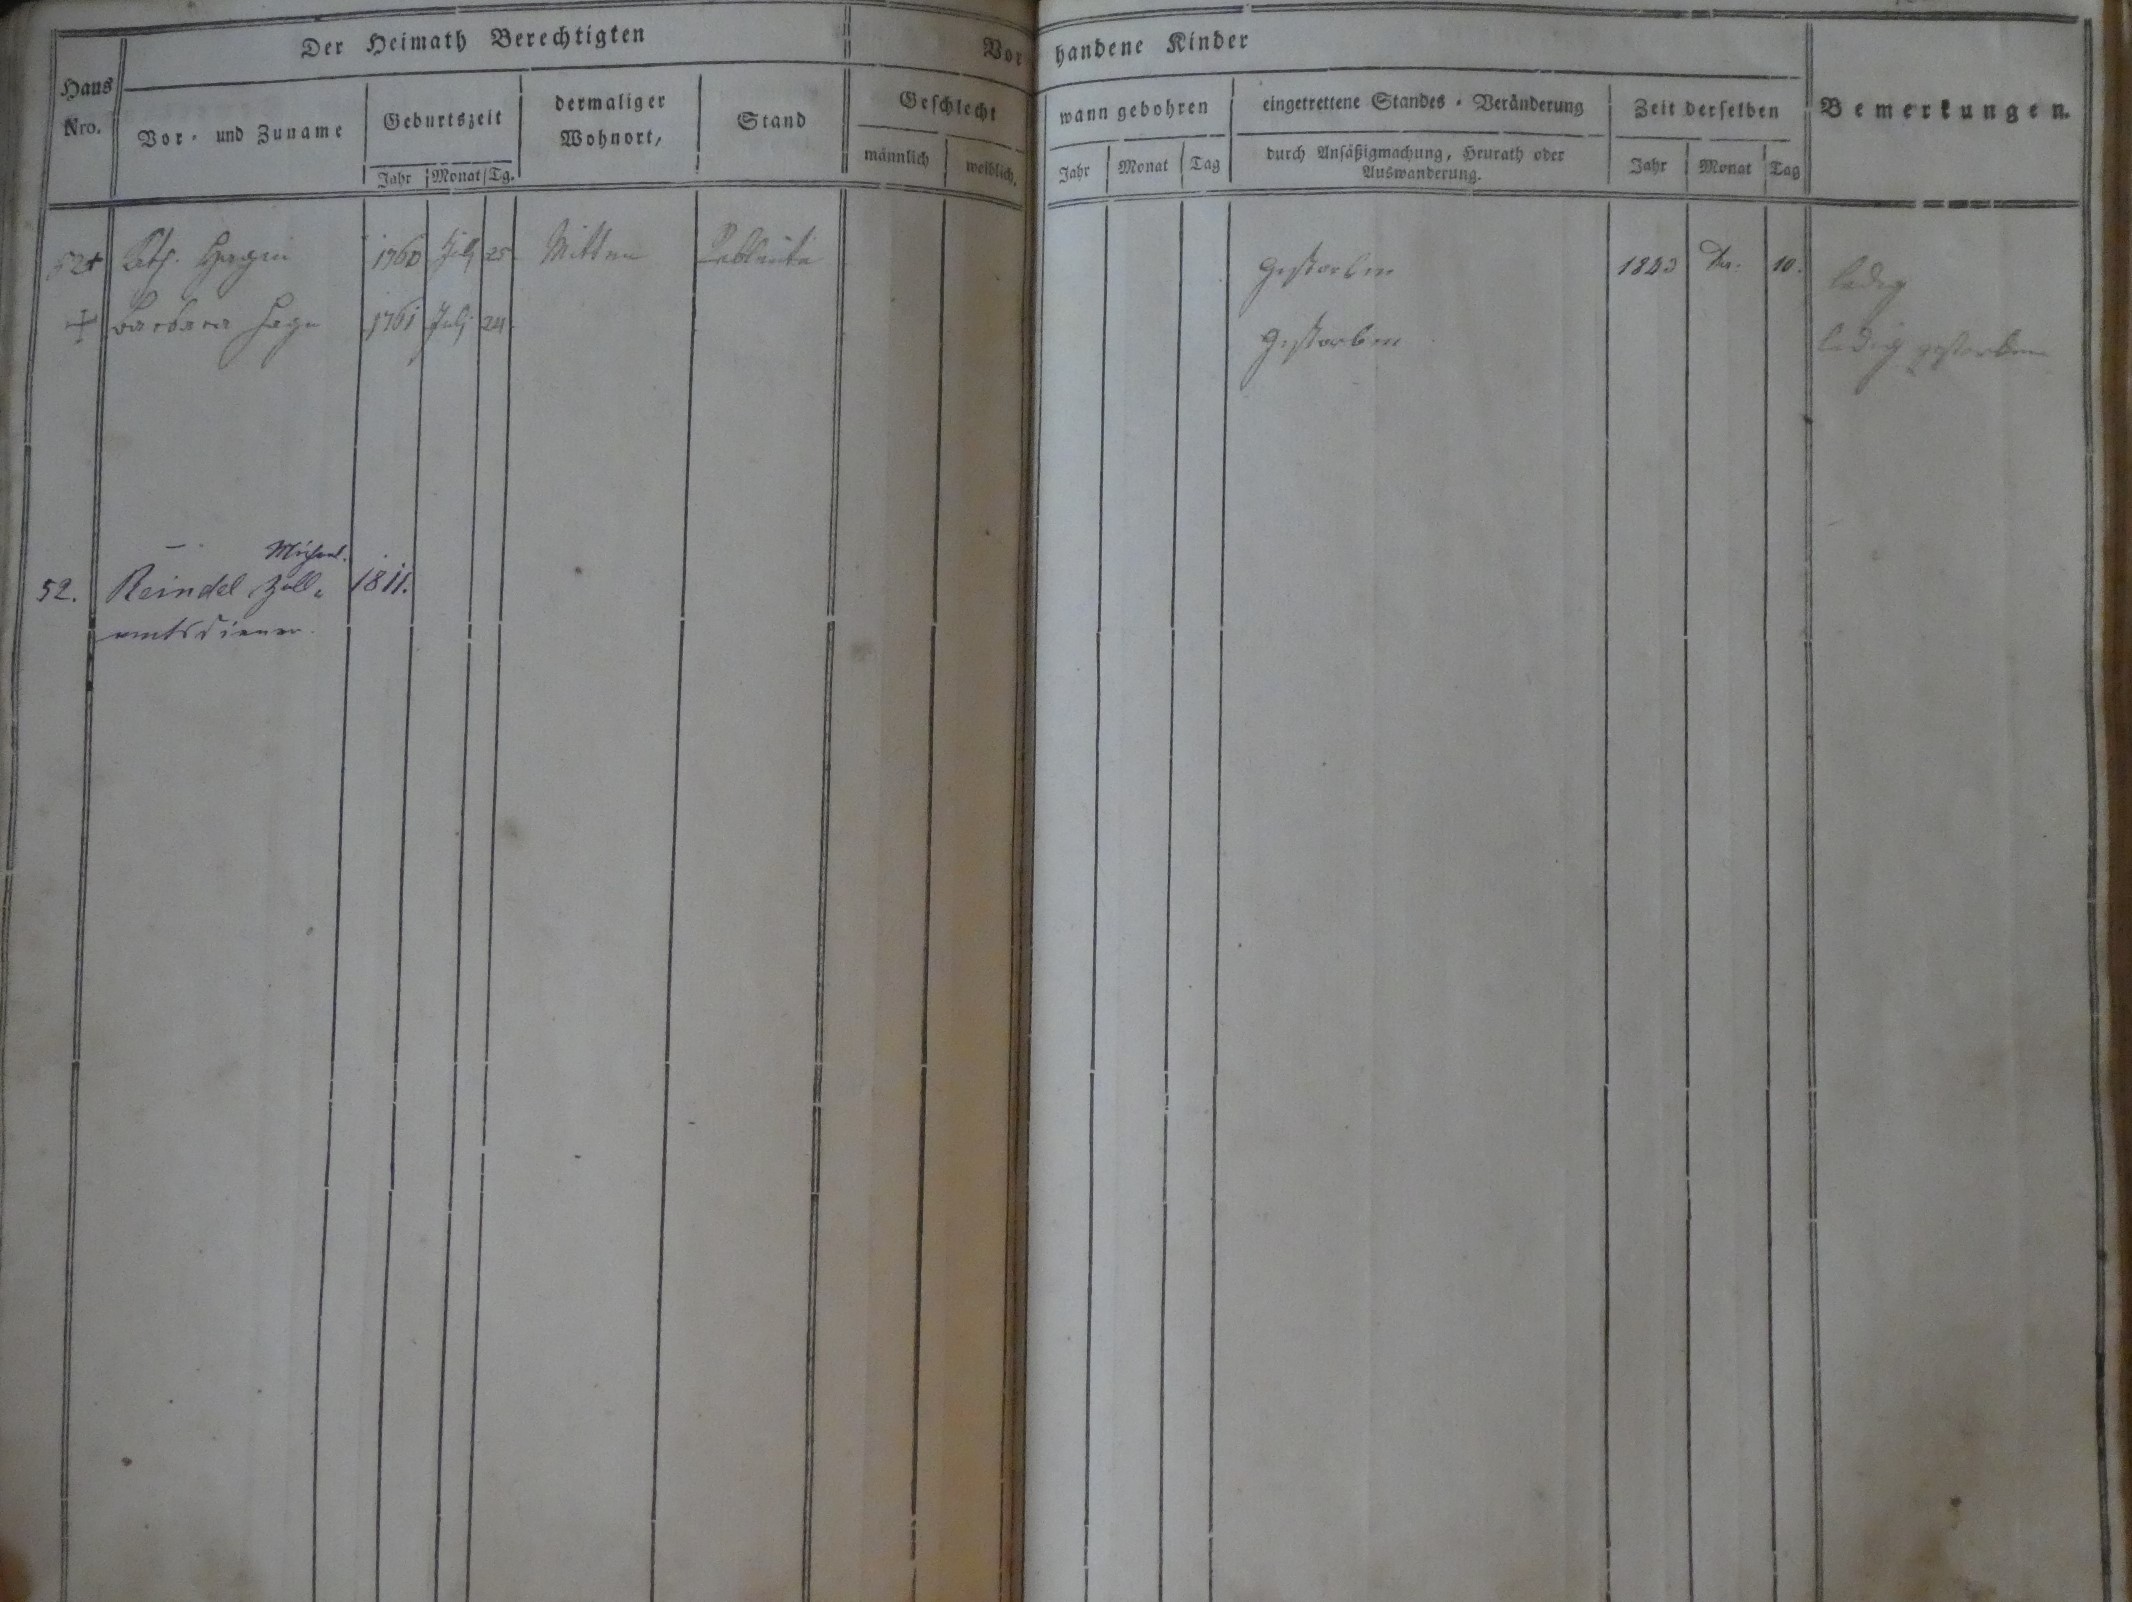 Der Heimath Berechtigten
Vor
handene Kinder
Haus
Nro.
Vor- und Zuname
Geburtszeit
Jahr Monat Tg.
dermaliger
Wohnort,
Stand
Geschlecht
männlich
weiblich.
wann gebohren
Jahr Monat Tag
eingetrettene Standes-Veränderung
durch Ansäßigmachung, Heurath oder
Auswanderung.
Zeit derselben
Jahr Monat Tag
Bemerkungen.
52+ Cath. Hagin 1760 July 25 Mitten Gestorben 1843 10. ledig
+ Barbara Hagn 1761 Juli 24 Gestorben ledig gestorben
Michael.
52. Reindel Zoll- 1811.
amtsdiener.